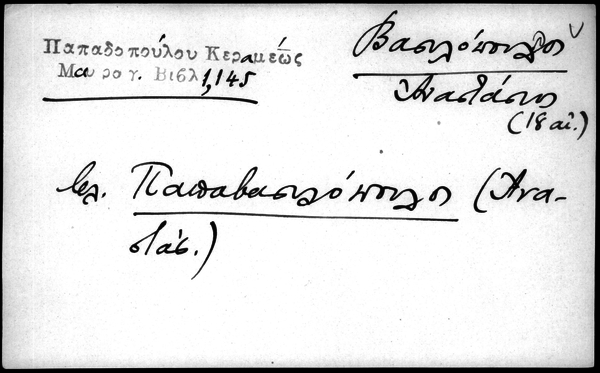 Παπαδοπούλου Κεραμέως
Μαυρογ. Βιβλ 1,145
Βασιλόπουλος
Ἀναστάσιος
(18 αἰ.)
βλ. Παπαβασιλόπουλος (Ἀνα-
στάσ.)